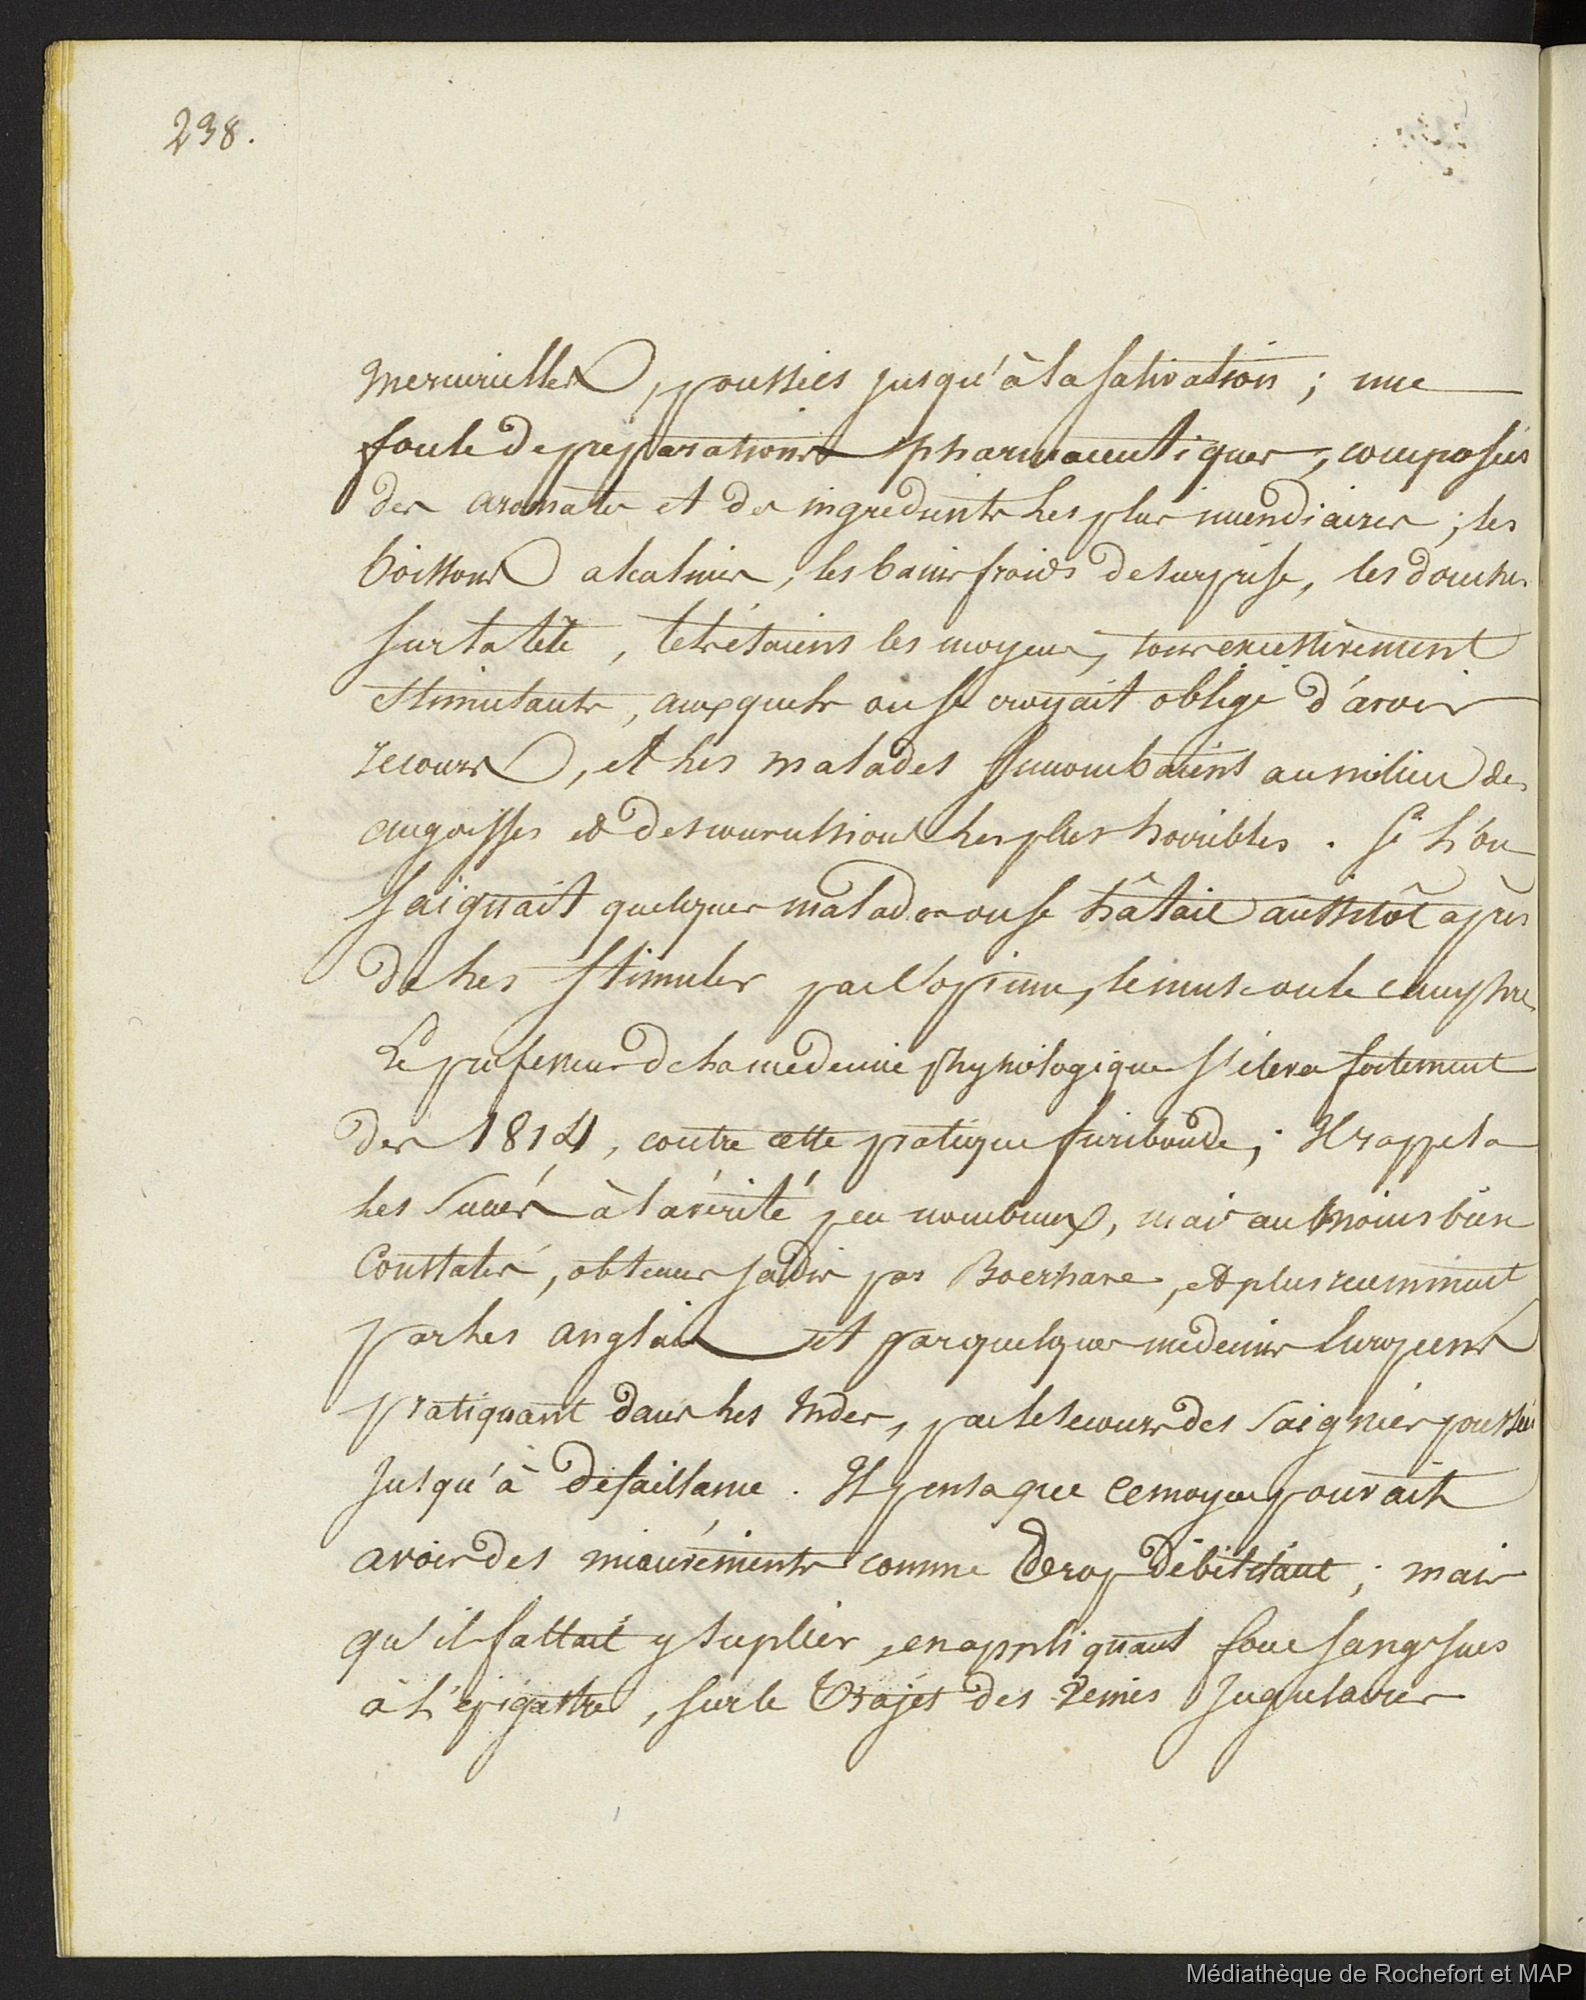 238.
mercurielles, poussiées jusqu'à la salivation ; une
foule de préparations pharmaceutiques, composées
des aromates et des ingrédients les plus incendiaires ; les
boissons alcalines, les bains froids de surprise, les douches
sur la tête, tels étaient les moyens, tous excessivement
stimulants, auxquels on se croyait obligé d'avoir
recours, et les malades succombaient au milieu des
angoisses et des convulsions les plus horribles. Si l'on
saignait quelques malades on se hâtait aussitôt après
de les stimuler par l'opium, le musc ou le camphre
Le professeur de la médecine physiologique s'éleva fortement
dès 1814, contre cette pratique furibonde ; Il rappela
les succés à la vérité peu nombreux, mais au moins bien
Constatés, obtenus jadis par Boerhave, et plus recemment
par les anglais et par quelques médecins Européens
pratiquant dans les Indes, par le secours des saignées poussées
jusqu'à défaillance. Il pensa que ce moyen pouvait
avoir des inconvénients comme trop débilitant ; mais
qu'il fallait y supléer, en appliquant force sangsues
à l'épigastre, sur le trajet des veines jugulaires
Médiathèque de Rochefort et MAP